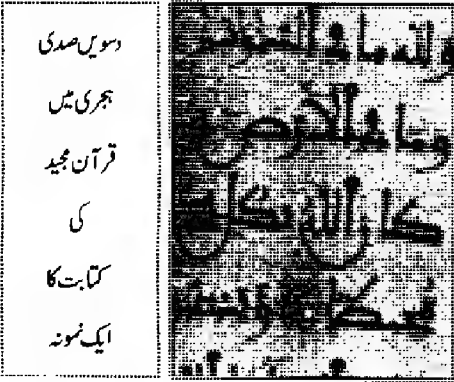 دسویں صدی
ہجری میں
قرآن مجید
کی
کتابت کا
ایک نمونہ
ولله ما في السموت
وما في الارض و
كان الله بكل